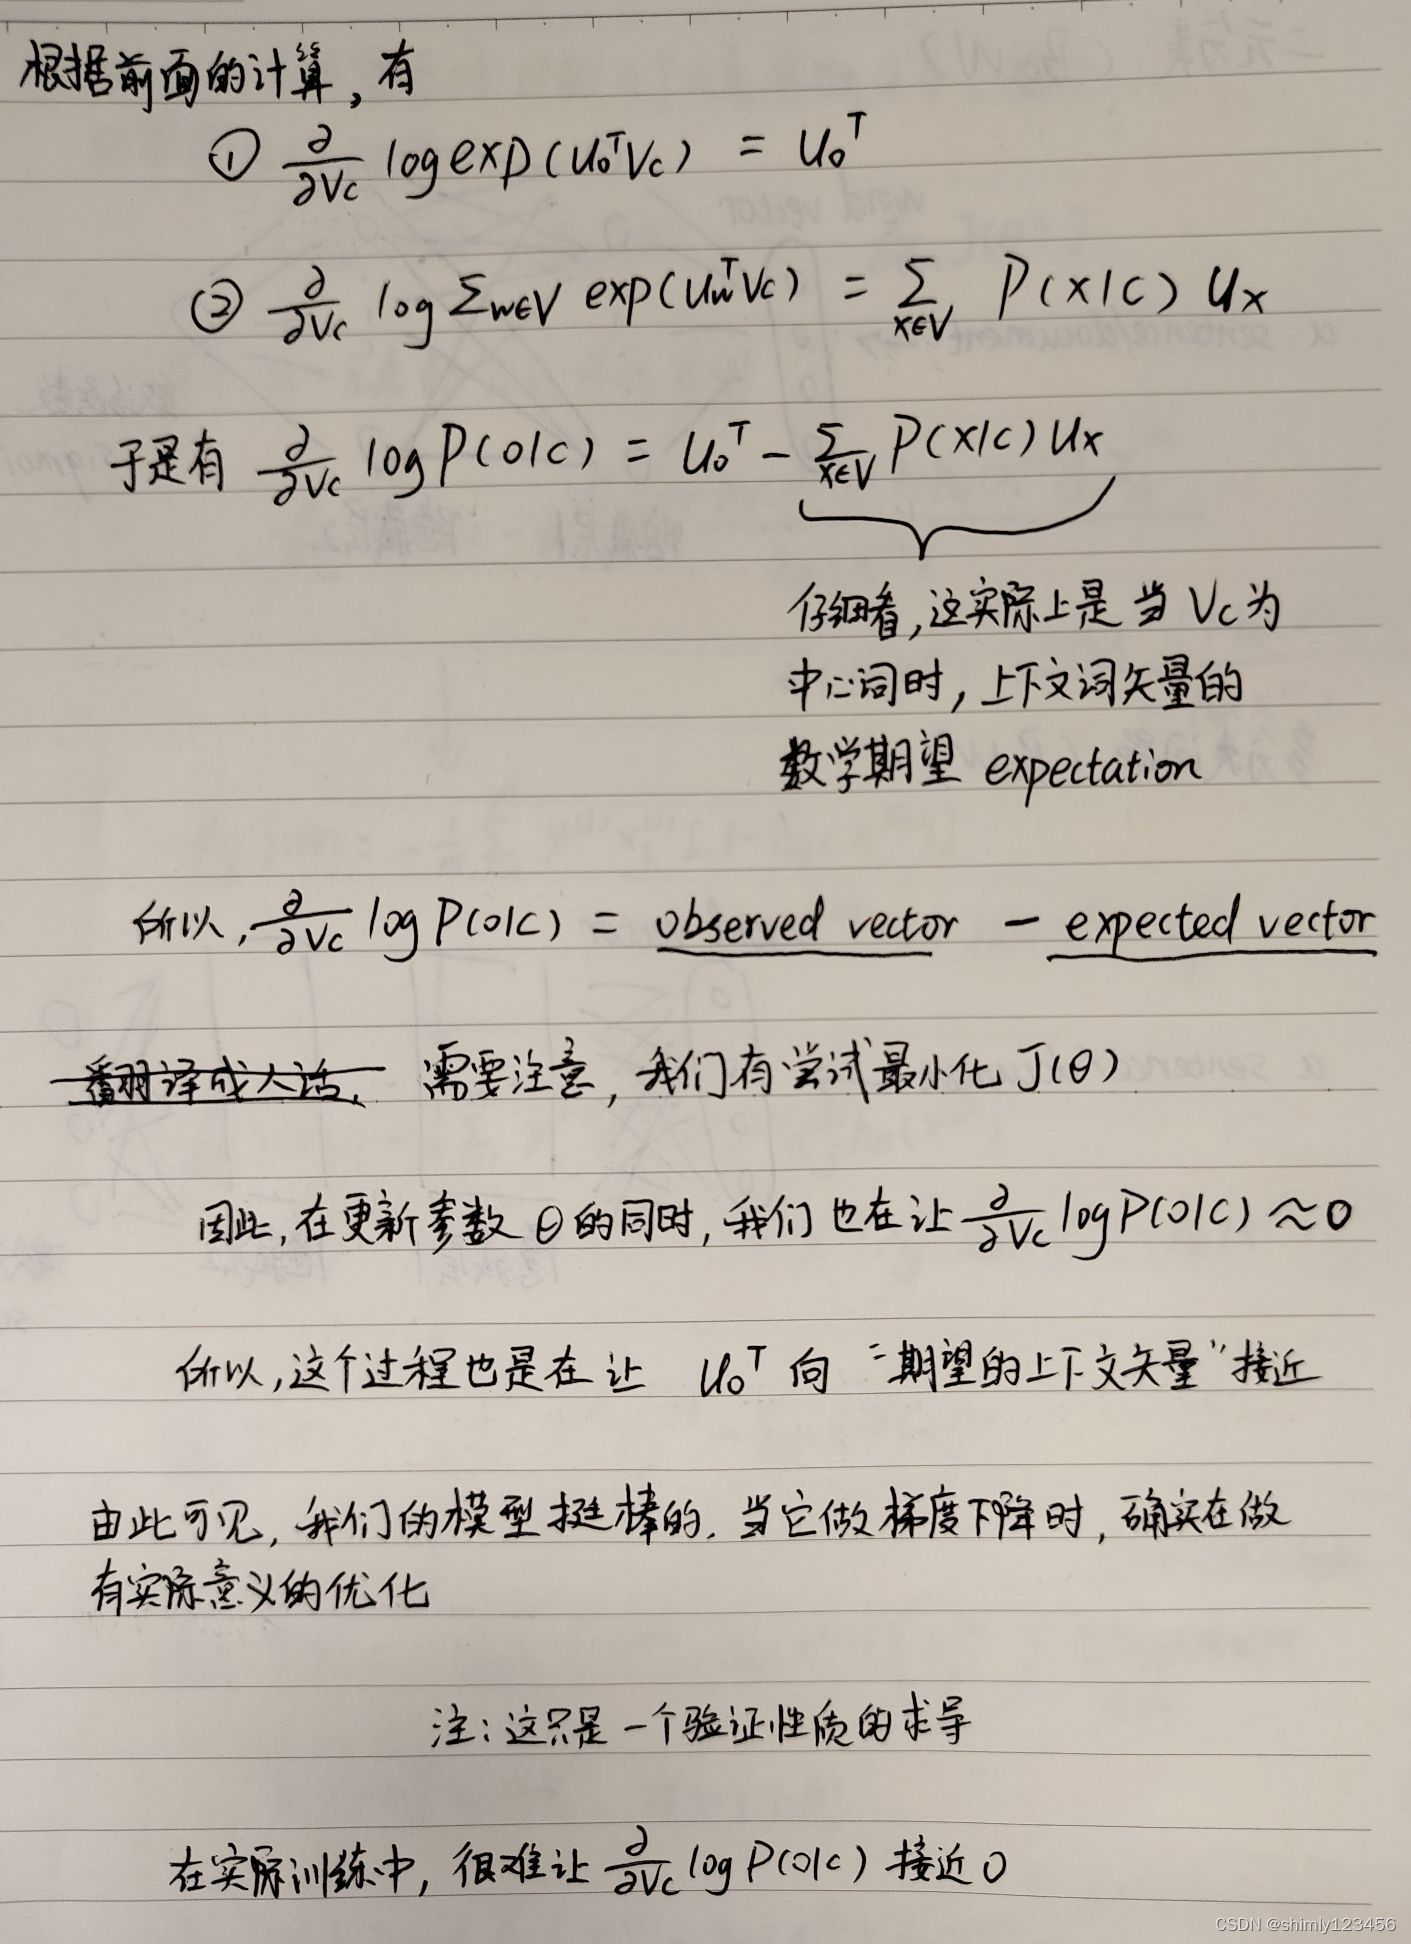 根据前面的计算,有
① ∂/∂Vc log exp(u₀ᵀVc) = u₀ᵀ
② ∂/∂Vc log Σw∈V exp(uwᵀVc) = Σx∈V P(x|c) ux
于是有 ∂/∂Vc log P(o|c) = u₀ᵀ - Σx∈V P(x|c) ux
仔细看,这实际上是当 Vc为
中心词时,上下文词矢量的
数学期望 expectation
所以,∂/∂Vc log P(o|c) = observed vector - expected vector
翻译成人话, 需要注意,我们有尝试最小化 J(θ)
因此,在更新参数 θ的同时,我们也在让 ∂/∂Vc log P(o|c) ≈ 0
所以,这个过程也是在让 u₀ᵀ 向 “期望的上下文矢量”接近
由此可见,我们的模型挺棒的.当它做梯度下降时,确实在做
有实际意义的优化
注:这只是一个验证性质的求导
在实际训练中,很难让 ∂/∂Vc log P(o|c) 接近0
CSDN @shimly123456